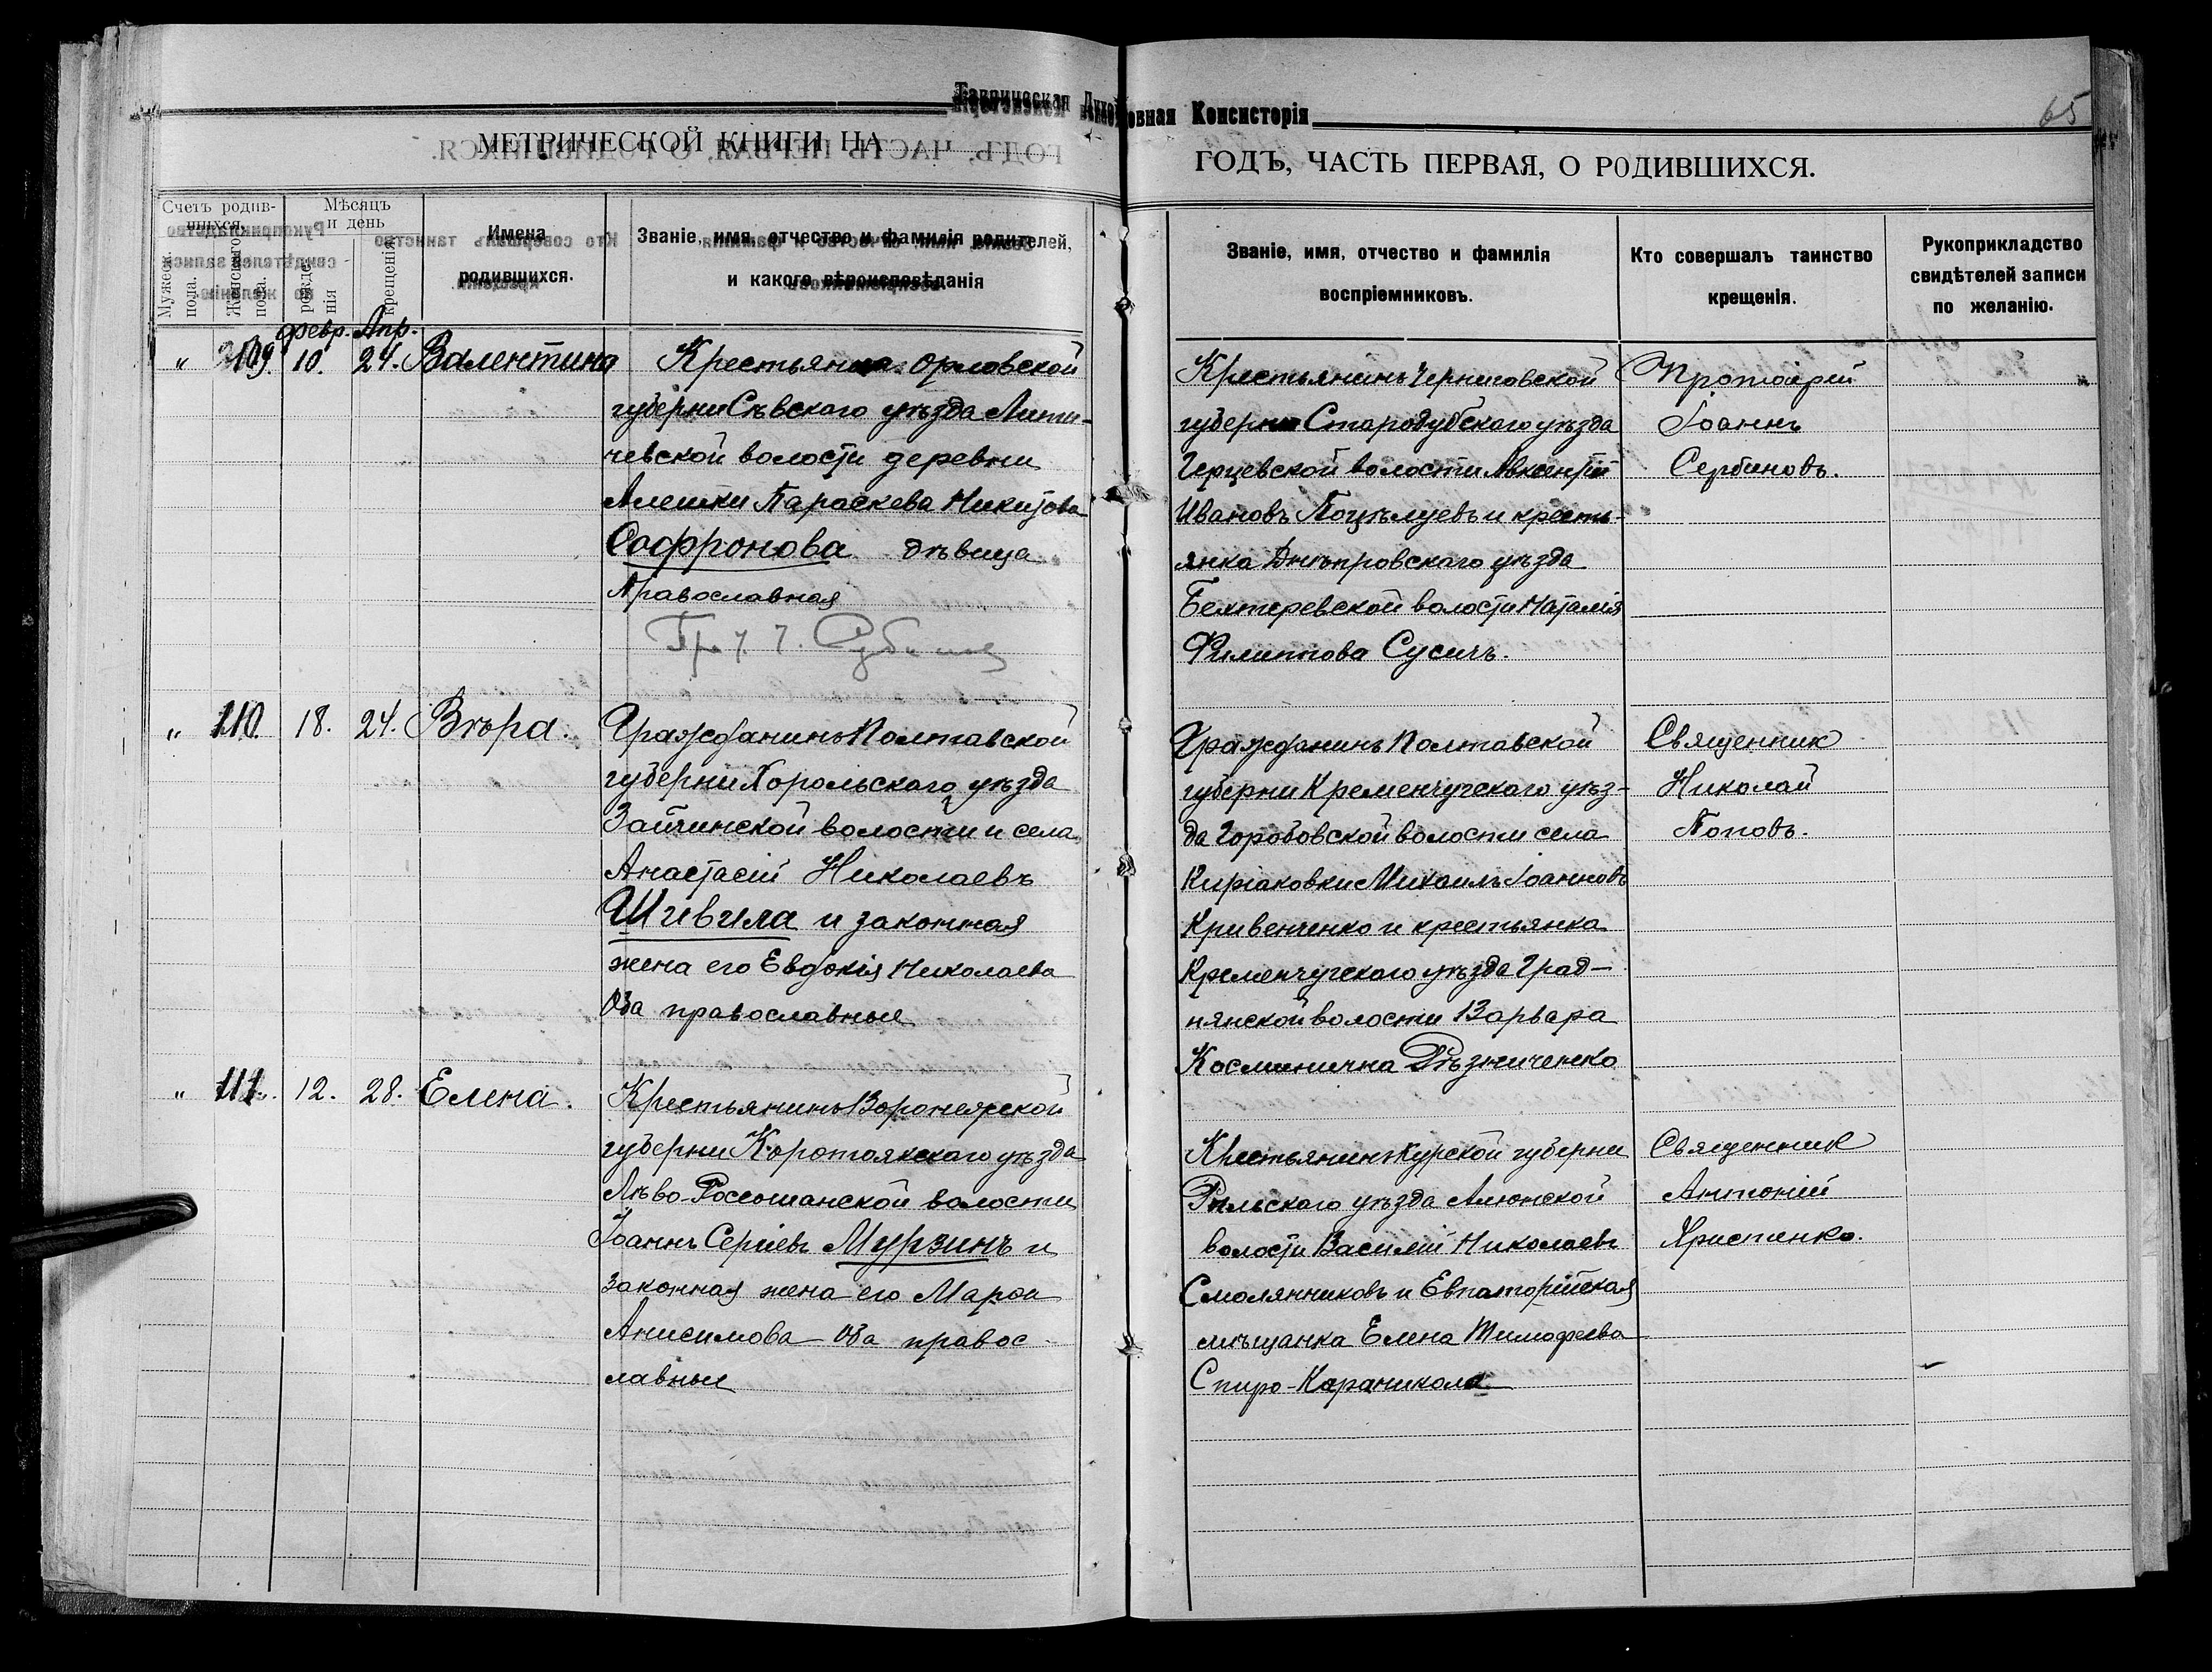 Таврическая Духовная Консисторія
65
МЕТРИЧЕСКОЙ КНИГИ НА
ГОДЪ, ЧАСТЬ ПЕРВАЯ, О РОДИВШИХСЯ.
Счетъ родившихся.
Мужеск. пола.
Женскаго пола.
Мѣсяцъ и день
рожденія
крещенія
Имена родившихся.
Званіе, имя, отчество и фамилія родителей,
и какого вѣроисповѣданія
Званіе, имя, отчество и фамилія
воспріемниковъ.
Кто совершалъ таинство
крещенія.
Рукоприкладство
свидѣтелей записи
по желанію.
февр. Апр.
" 109. 10. 24. Валентина
Крестьянка Орловской
губерни Сѣвского уѣзда Лити-
чевской волости деревни
Алешки Параскева Никитова
Софронова дѣвица
Православная
Крестьянинъ Черниговской
губерни Стародубскаго уѣзда
Чертской волости Авксентій
Ивановъ Поцѣлуевъ и кресть-
янка Днѣпровскаго уѣзда
Бехтеревской волости Наталія
Филиппова Сусичъ.
Протоіерей
Іоаннъ
Сербиновъ.
" 110. 18. 24. Вѣра.
Гражданинъ Полтавской
губерни Хорольскаго уѣзда
Зайчинской волости и села
Анастасій Николаевъ
Шивила и законная
жена его Евдокія Николаева
Оба православные
Гражданинъ Полтавской
губерни Кременчугскаго уѣз-
да Горобовской волости села
Киріаковки Михаилъ Іоанновъ
Кривенченко и крестьянка
Кременчугскаго уѣзда Град-
нянской волости Варвара
Косминична Рѣзниченко
Священник
Николай
Поповъ.
" 111. 12. 28. Елена.
Крестьянинъ Воронежской
губерни Коротоякскаго уѣзда
Лѣво-Россошанской волости
Іоаннъ Сергіевъ Мурзинъ и
законная жена его Мария
Анисимова Оба правос-
лавные
Крестьянинъ Курской губерни
Рыльскаго уѣзда
волости Василій Николаевъ
Смолянниковъ и Евпаторійская
мѣщанка Елена Тимофеева
Спиро-Караникола
Священник
Антоній
Христенко.